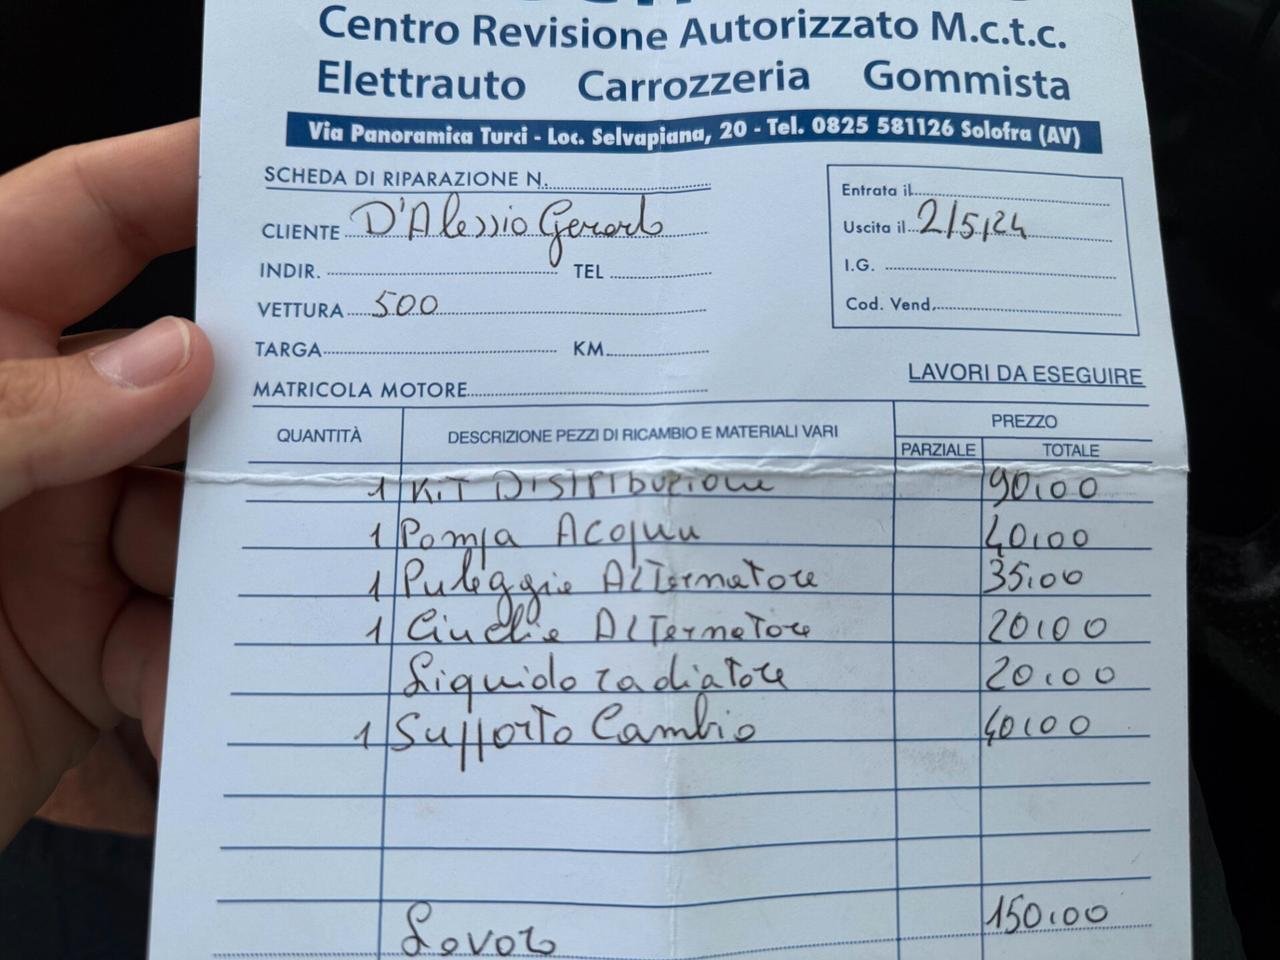 Centro Revisione Autorizzato M.c.t.c.
Elettrauto Carrozzeria Gommista
Via Panoramica Turci - Loc. Selvapiana, 20 - Tel. 0825 581126 Solofra (AV)
SCHEDA DI RIPARAZIONE N.
CLIENTE D'Alessio Gerardo
INDIR. TEL
VETTURA 500
TARGA KM
MATRICOLA MOTORE
Entrata il
Uscita il 2/5/24
I.G.
Cod. Vend.
LAVORI DA ESEGUIRE
QUANTITÀ DESCRIZIONE PEZZI DI RICAMBIO E MATERIALI VARI PREZZO
PARZIALE TOTALE
1 Kit Distribuzione 90,00
1 Pompa Acqua 40,00
1 Puleggia Alternatore 35,00
1 Cinghia Alternatore 20,00
Liquido radiatore 20,00
1 Supporto Cambio 40,00
Lavoro 150,00